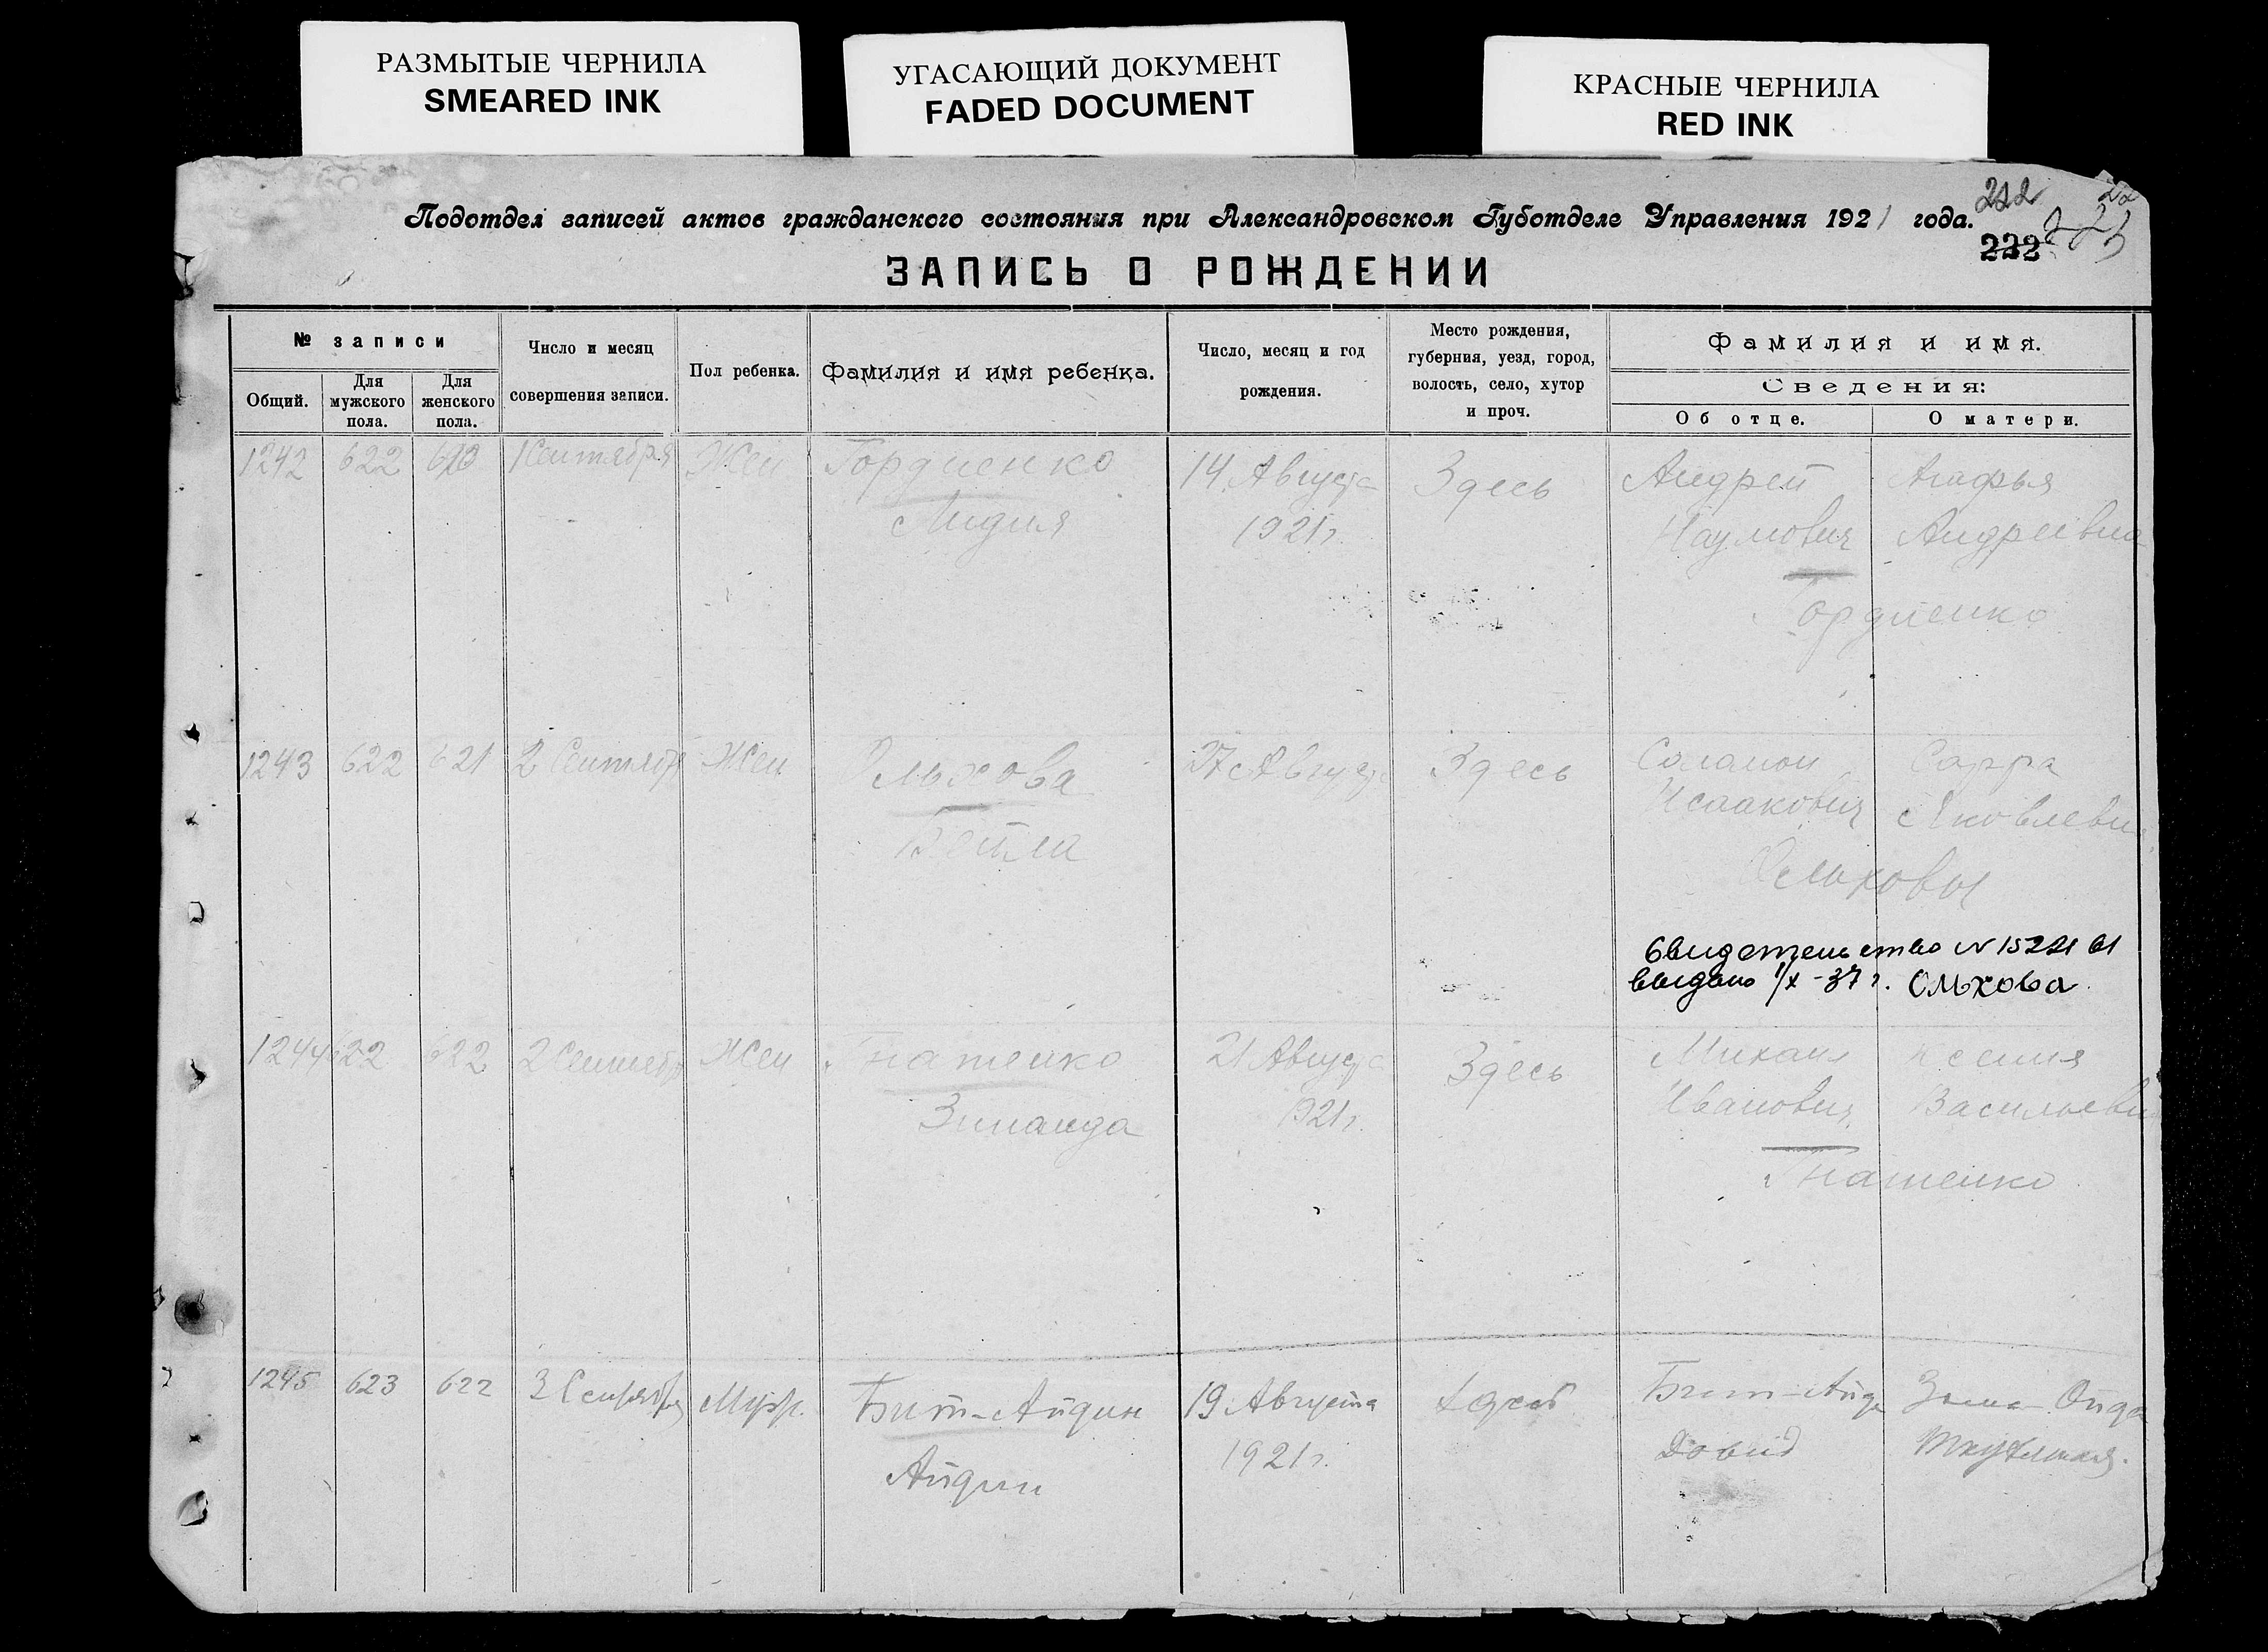 РАЗМЫТЫЕ ЧЕРНИЛА
SMEARED INK
УГАСАЮЩИЙ ДОКУМЕНТ
FADED DOCUMENT
КРАСНЫЕ ЧЕРНИЛА
RED INK
Подотдел записей актов гражданского состояния при Александровском Губотделе Управления 1921 года.
222
232
ЗАПИСЬ О РОЖДЕНИИ
№ записи
Общий.
Для мужского пола.
Для женского пола.
Число и месяц
совершения записи.
Пол ребенка.
Фамилия и имя ребенка.
Число, месяц и год
рождения.
Место рождения,
губерния, уезд, город,
волость, село, хутор
и проч.
Фамилия и имя.
Сведения:
Об отце.
О матери.
1242 622 620 1 Сентября Жен Гордиенко 14 Августа Здесь Андрей Агафья
Лидия 1921 г. Наумович Андреевна
Гордиенко
1243 622 621 2 Сентября Жен Ольхова 27 Августа Здесь Соломон Сарра
Бейла Исаакович Яковлевна
Ольховы
Свидетельство N
выдано 1/X-37 г. Ольхова.
1244 622 622 2 Сентября Жен Гнатенко 21 Августа Здесь Михаил Ксения
Зинаида 1921 г. Иванович Васильевна
Гнатенко
1245 623 622 3 Сентября Муж. Бит-Айдин 19 Августа Бит-Айдин
Айдин 1921 г. Довид